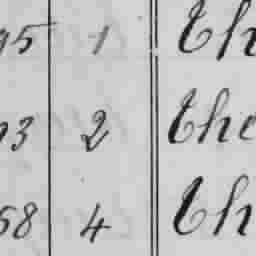 95 1 Th
93 2 The
58 4 Th